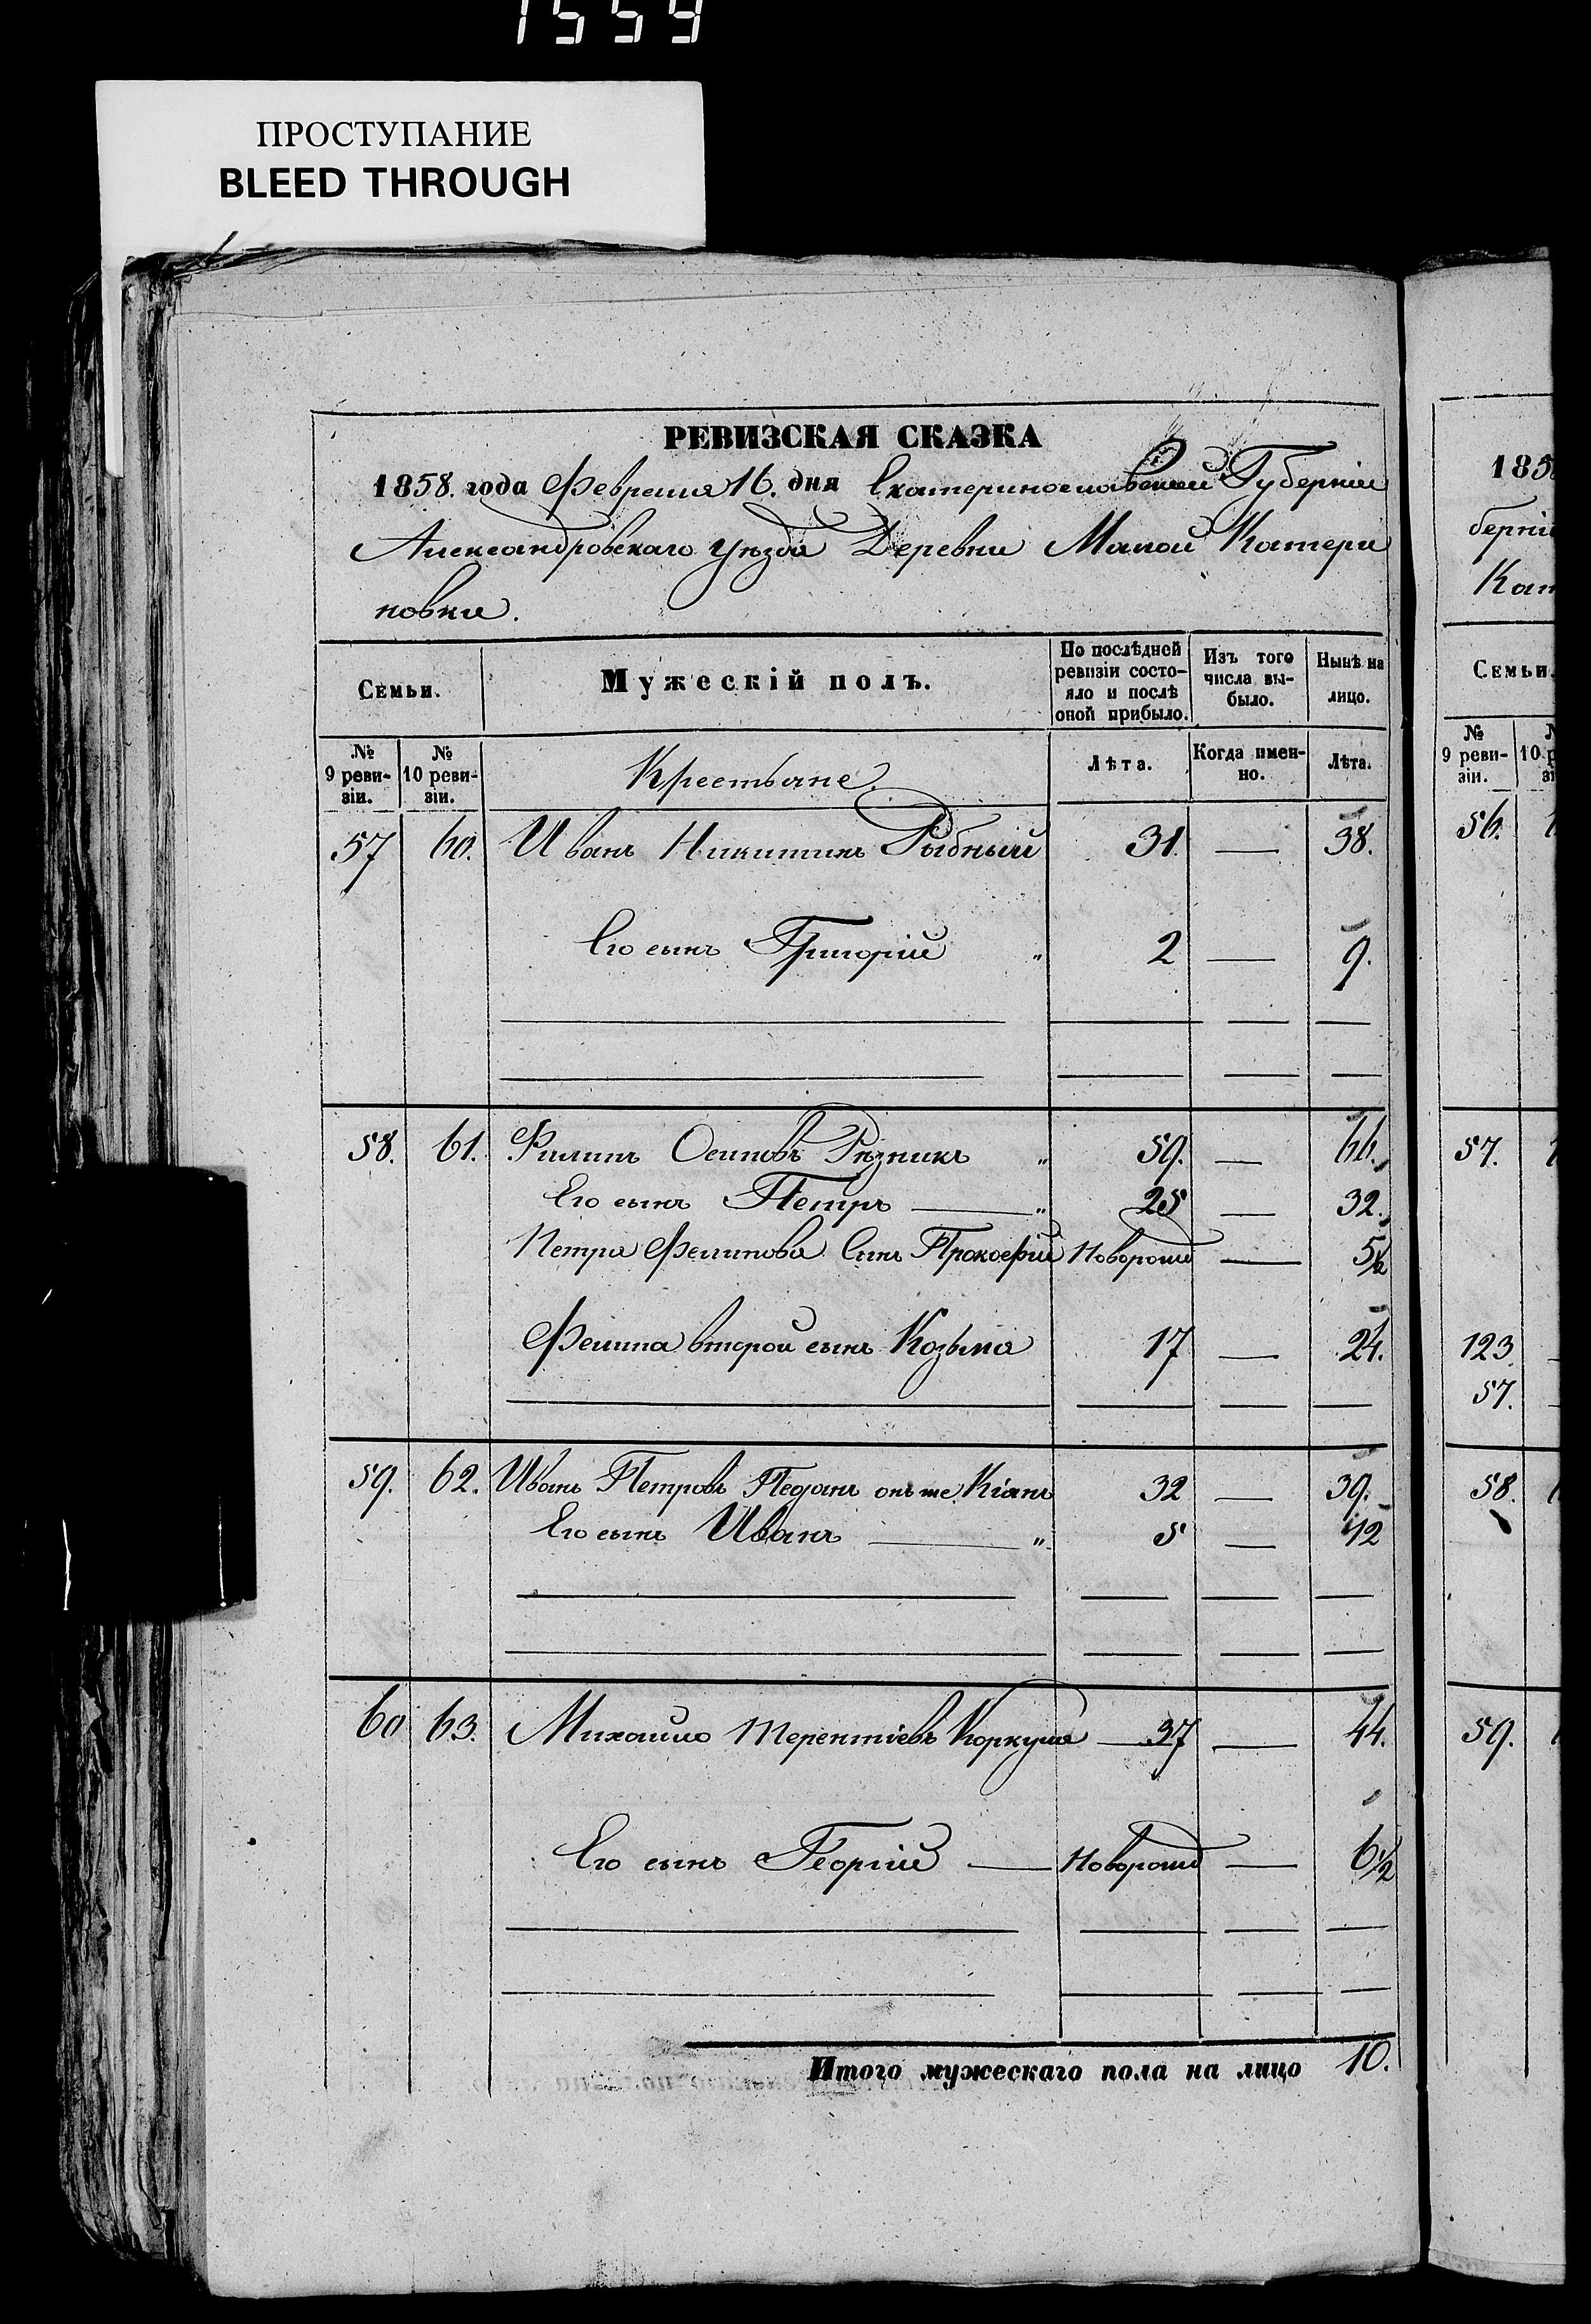 1559
ПРОСТУПАНИЕ
BLEED THROUGH
РЕВИЗСКАЯ СКАЗКА
1858. года Февраля 16. дня Екатеринославской Губерніи
Александровскаго уѣзда Деревни Малой Катери
новки.
Семьи. Мужескій полъ. По послѣдней ревизіи состо-яло и послѣ оной прибыло. Изъ того числа вы-было. Нынѣ на лицо.
№ 9 реви-зіи. № 10 реви-зіи. Крестьяне. Лѣта. Когда имен-но. Лѣта.
57 60. Иванъ Никитинъ Рыбный 31. — 38.
Его сынъ Григорій " 2 — 9.
58. 61. Филипъ Осиповъ Рѣзникъ " 59. — 66.
Его сынъ Петръ — " 25 — 32.
Петра Филипова Сынъ Прокофій Новорожд — 5½
Филипа второй сынъ Козьма 17 — 24.
59. 62. Иванъ Петровъ онъ же Кіанъ 32 — 39.
Его сынъ Иванъ — " 5 — 12
60 63. Михайло Терентіевъ Коркуша — 37 — 44.
Его сынъ Георгій — Новорожд — 6½
Итого мужескаго пола на лицо 10.
185
берніи
Кат
Семьи.
№ 9 реви-зіи.
56.
57.
123
57.
58.
59.